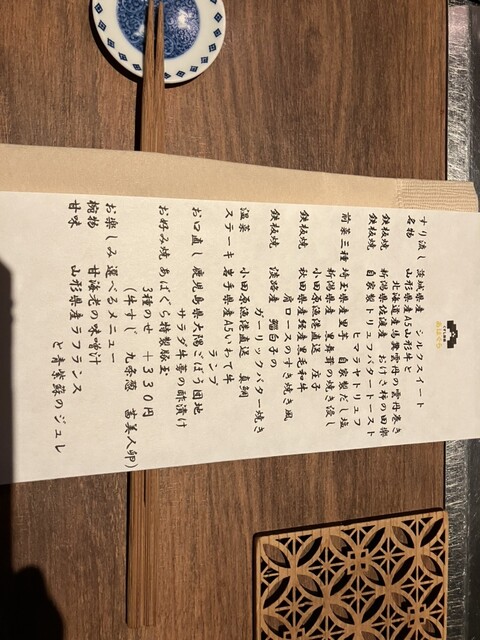 すり流し 茨城県産 シルクスイート
名物 山形県産A5山形牛と
北海道産馬糞雲丹の雲丹巻き
鉄板焼 新潟県佐渡産 おけさ柿の田楽
鉄板焼 自家製トリュフバタートースト
ヒマラヤトリュフ
前菜三種 埼玉県産里芋 自家製だし塩
新潟県産 黒舞茸の焼き浸し
小田原漁港直送 庄子
鉄板焼 秋田県産経産黒毛和牛
肩ロースのすき焼き風
鉄板焼 淡路産 鱈白子の
ガーリックバター焼き
温菜 小田原漁港直送 真鯛
ステーキ 岩手県産A5いわて牛
ランプ
お口直し 鹿児島県大隅ごぼう団地
サラダ牛蒡の酢漬け
お好み焼 あばぐら特製豚玉
3種のせ +330円
(牛すじ 九条葱 茜美人卵)
お楽しみ 選べるメニュー
椀物 甘海老の味噌汁
甘味 山形県産ラフランス
と青紫蘇のジュレ